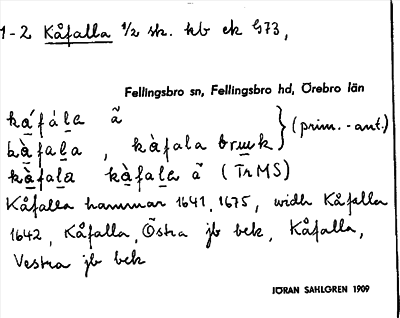 1-2 Kåfalla 1/2 sk. kb ek G73,
Fellingsbro sn, Fellingsbro hd, Örebro län
káfála ã
kàfala, kàfala bruk } (prim.-ant.)
kàfala kàfala ã (TrMS)
Kåfalla hammar 1641, 1675, widh Kåfalla
1642, Kåfalla, Östra jb bek, Kåfalla,
Vestra jb bek
JÖRAN SAHLGREN 1909